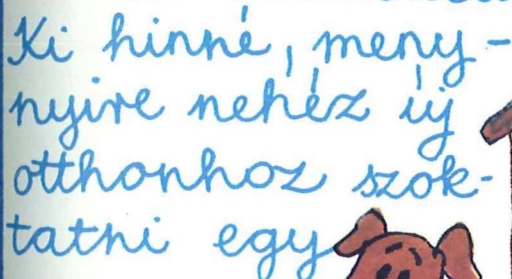 Ki hinné, meny-
nyire nehéz új
otthonhoz szok-
tatni egy